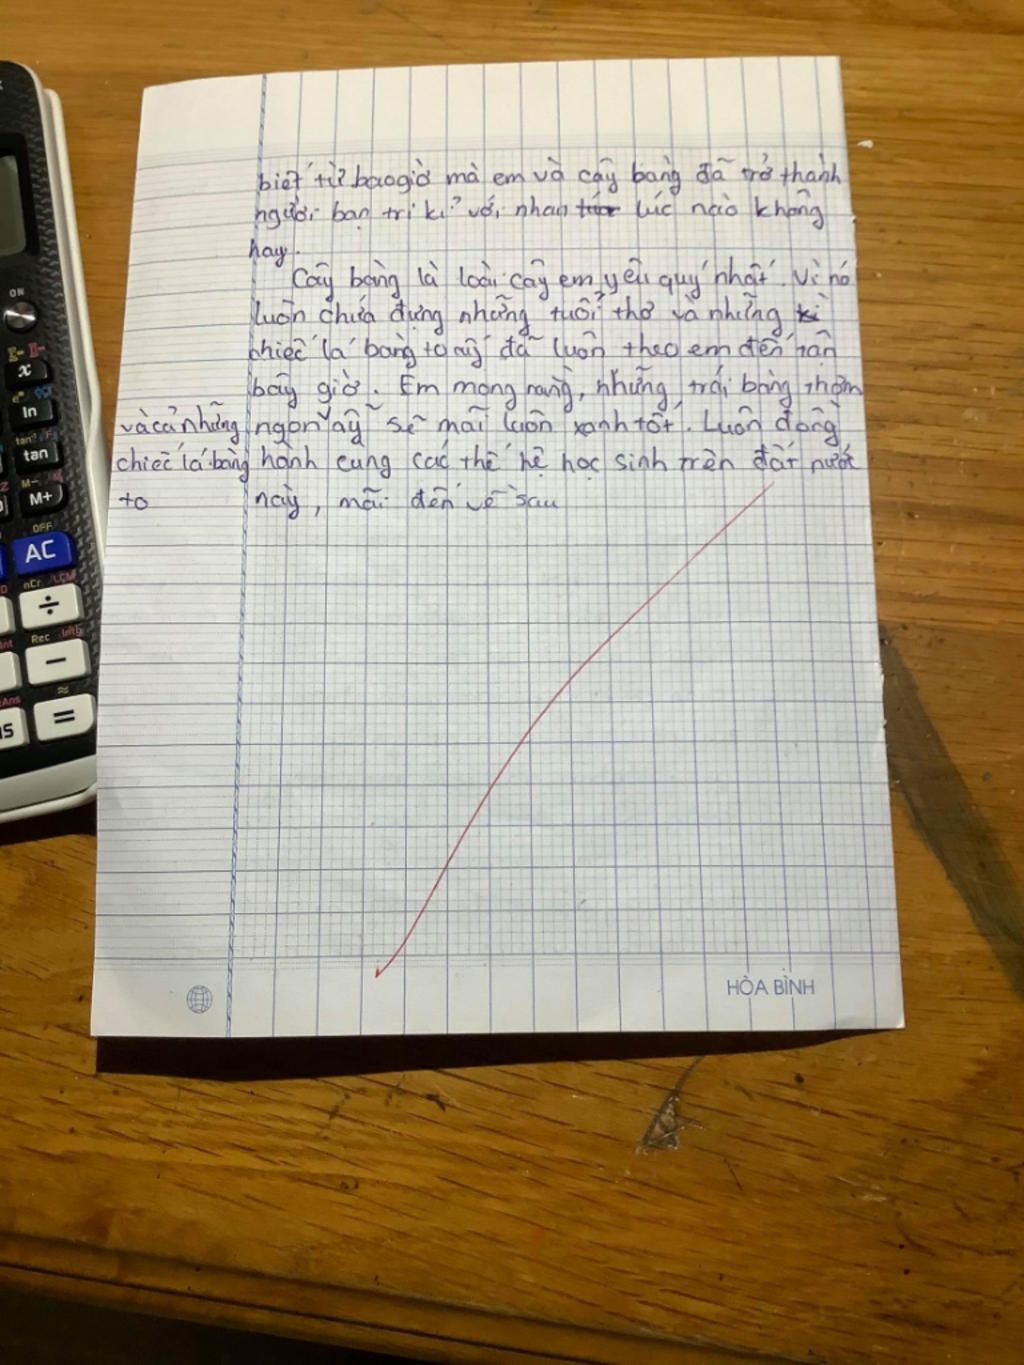 biết từ bao giờ mà em và cây bàng đã trở thành
người bạn tri kỉ với nhau lúc nào không
hay.
Cây bàng là loài cây em yêu quý nhất. Vì nó
luôn chứa đựng những tuổi thơ và những
chiếc lá bàng to ấy đã luôn theo em đến tận
bây giờ. Em mong rằng, những trái bàng thơm
và cả những ngon ấy sẽ mãi luôn xanh tốt. Luôn đồng
chiếc lá bàng hành cung các thế hệ học sinh trên đất nước
to này, mãi đến về sau
HÒA BÌNH
ON
x
ln
tan
M-
M+
OFF
AC
nCr
÷
Rec
−
≈
=